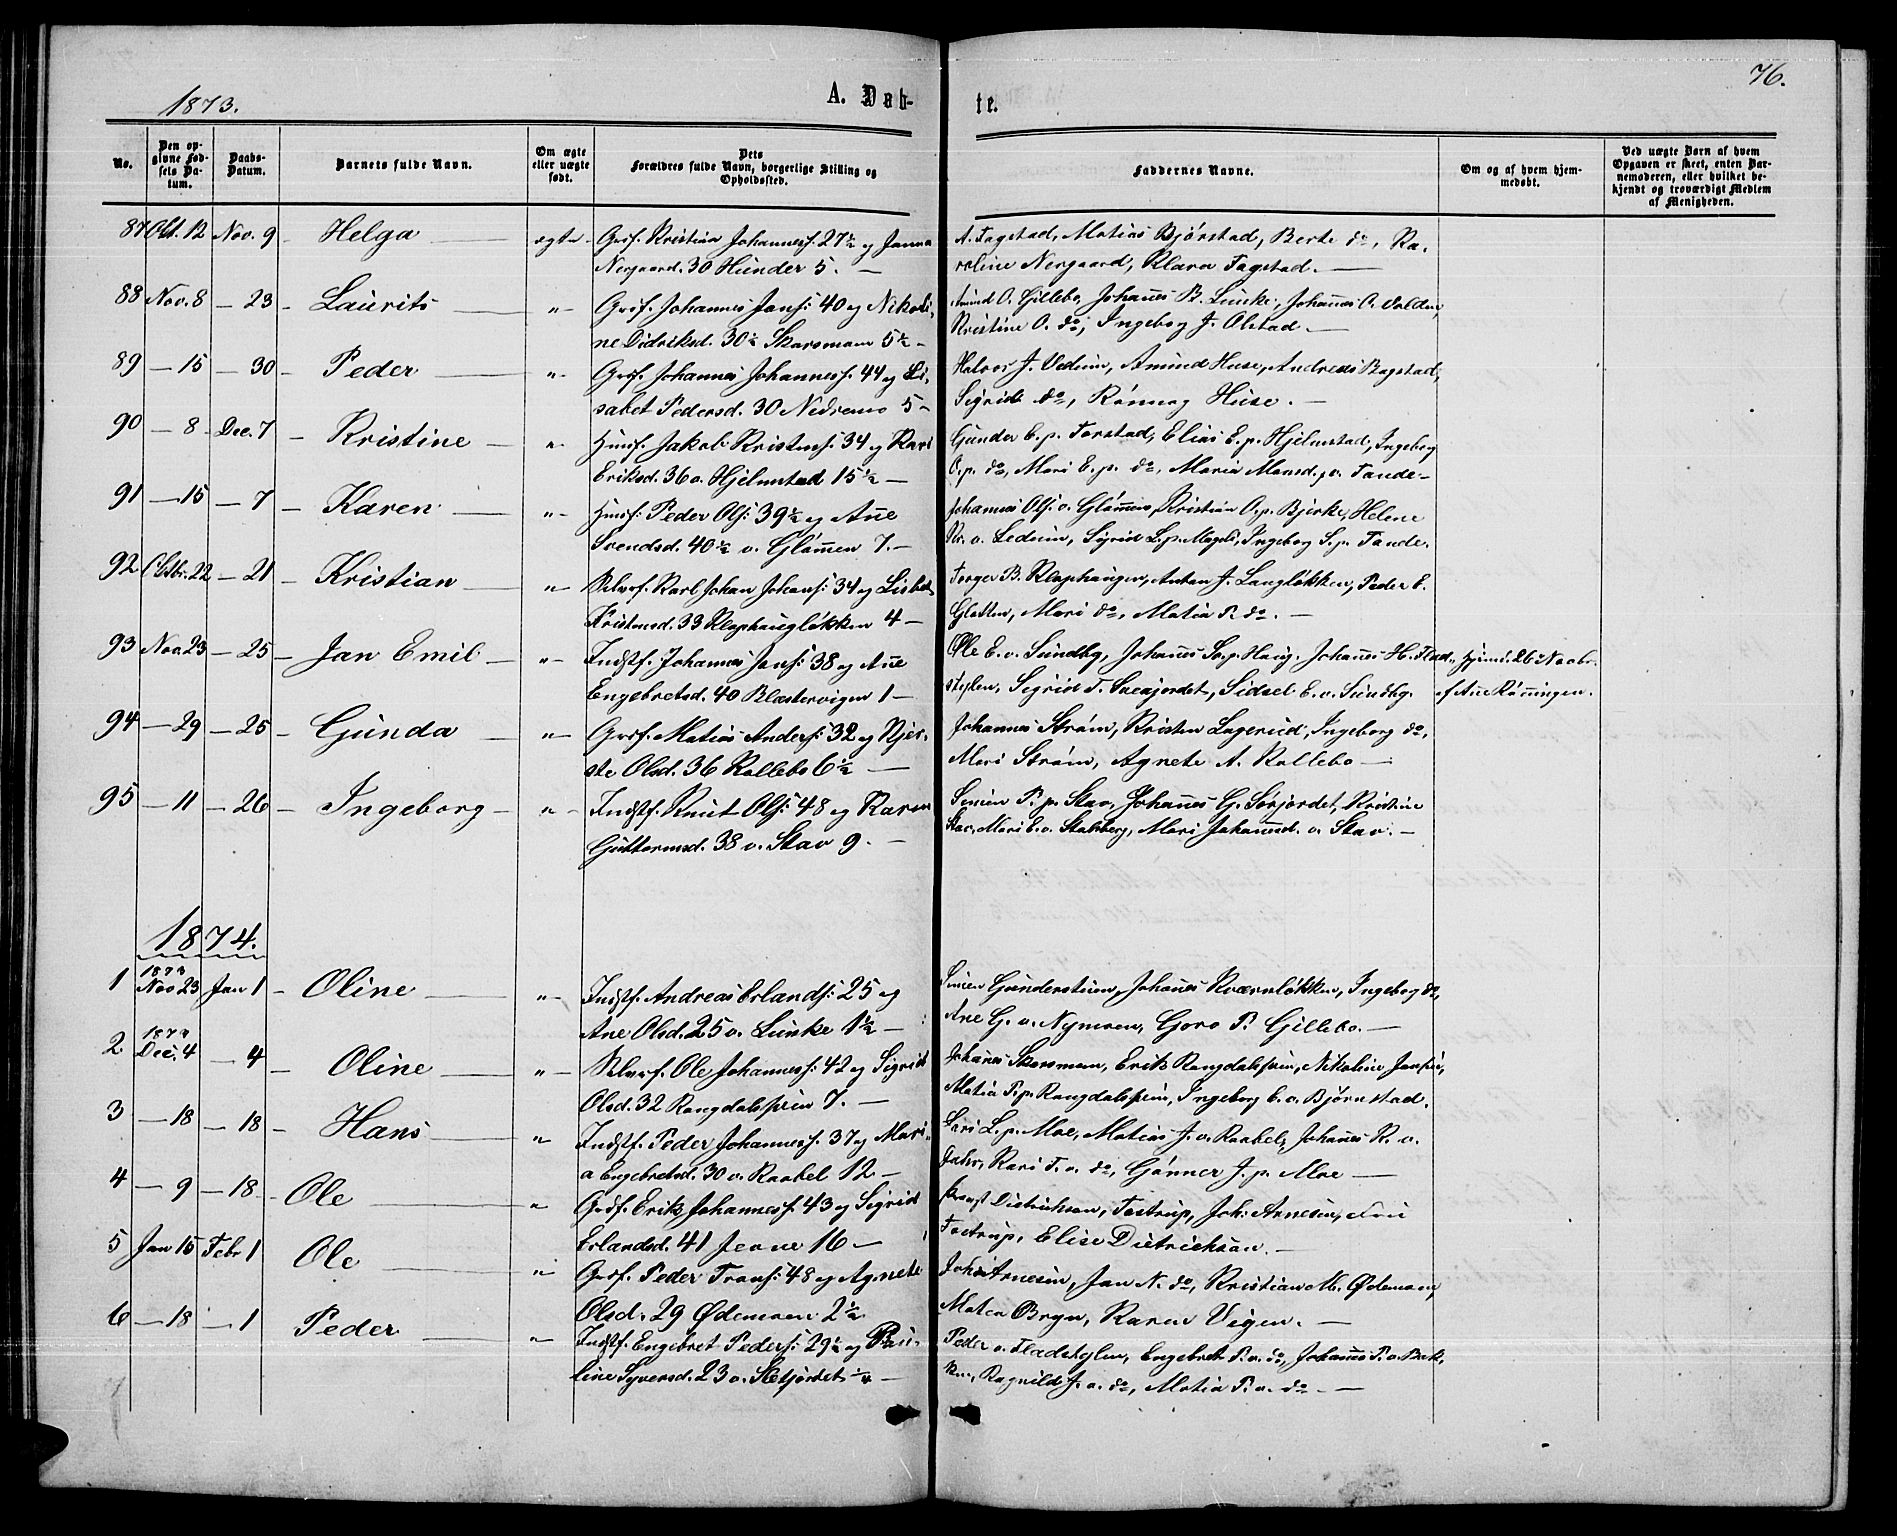 1873.
A. Døb-
te.
76.
No.
Den op-
givne Fød-
sels Da-
tum.
Daabs-
Datum.
Barnets fulde Navn.
Om ægte
eller uægte
født.
Dets
Forældres fulde Navn, borgerlige Stilling og
Opholdssted.
Faddernes Navne.
Om og af hvem hjem-
medøbt.
Ved uægte Børn af hvem
Opgaven er skeet, enten Bar-
nemoderen, eller hvilket be-
kjendt og troværdigt Medlem
af Menigheden.
87 Okt. 12 Nov. 9 - Helga — ægte Grdf. Kristian Johannesf. 27½ og Janna
Nergaard. 30 Hunder 5. —
A. Fagstad, Matias Bjørstad, Berte do, Ka-
roline Nergaard, Klara Fagstad. —
88 Nov. 8 — 23 - Laurits — " Grdf. Johannes Jansf: 40 og Nikoli-
ne Didriksd. 30½ Skarsmoen 5½ -
Amund O. Gillebo, Johannes B. Lunke, Johannes O. Volden,
Kristine O. do, Ingeborg J. Olstad. —
89 — 15 — 30 - Peder — " Grdf. Johannes Johannesf. 44 og Li-
sabet Pedersd. 30 Nedremo 5 -
Halvor J. Vedum, Amund Huse, Andreas Bagstad,
Sigrid do, Rønnog Huse. —
90 — 8 Dec. 7 - Kristine — " Husf. Jakob Kristensf: 34 og Kari
Eriksd. 36 o. Hjelmstad 15½ —
Gunder E. p. Forstad, Elias E. p. Hjelmstad, Ingeborg
O. p. do, Mari E. p. do, Maria Monsd. o. Tande -
91 — 15 — 7 - Karen — " Husf: Peder Olsf: 39½ og Ane
Svendsd. 40½ o. Glømmen 7. —
Johannes Olsf. o. Glømmen, Kristian O. p. Bjerke, Helene
Kr. o. Ledum, Sigrid L. p. Mageli, Ingeborg S. p. Tande.
92 Oktbr. 22 — 21 - Kristian — " Selverf. Karl Johan Johansf: 34 og Lisbet
Kristensd. 33 Klaphaugløkken 4 —
Torger B. Klaphaugen, Anton J. Langløkken, Peder E.
Glatten, Mari do, Matia P. do. —
93 Nov 23 — 25 - Jan Emil — " Indstf. Johannes Jansf: 38 og Ane
Engebretsd. 40 Blæstervigen 1 —
Ole E. o. Sundbg, Johannes S. p. Haug, Johannes H. Flad-
stylen, Sigrid T. Snaajordet, Sidsel E. o. Sundbg.
Hjemd. 26 Novbr.
af Ane Rønningen.
94 — 29 — 25 - Gunda — " Grdf. Matias Andersf: 32 og Kjer-
ste Olsd. 36 Kollebo 6½ —
Johannes Strøm, Kristen Lagerud, Ingeborg do,
Mari Strøm, Agnete A. Kollebo —
95 — 11 — 26 - Ingeborg — " Indstf. Knut Olsf: 48 og Karen
Guttormsd. 38 o. Stav 9. —
Simen P. p. Stav, Johannes G. Sørjordet, Kristine
Stav, Mari E. o. Stalsberg, Mari Johannesd. o. Stav. —
1874.
1 1873 Nov 23 Jan 1 - Oline — " Indstf. Andreas Erlandsf: 25 og
Ane Olsd. 25 o. Lunke 1½ —
Simen Gunderstuen, Johannes Kværnløkken, Ingeborg do,
Ane G. o. Nymoen, Goro P. Gillebo. —
2 1873 Dec. 4 — 4 - Oline — " Selverf. Ole Johannesf: 42 og Sigrid
Olsd. 32 Rangdalspien 7. —
Johannes Skarsmoen, Erik Rangdalspien, Nikoline Janspien,
Matia P. p. Rangdalspien, Ingeborg E. o. Bjørnstad.
3 — 18 — 18 - Hans — " Indstf. Peder Johannesf. 37 og Mari-
a Engebretsd. 30 o. Raabel 12 —
Kari L. p. Moe, Matias J. o. Raabel, Johannes K. o.
do, Kari T. o. do, Gønner J. p. Moe —
4 — 9 — 18 Ole — " Grdf. Erik Johannesf. 43 og Sigrid
Erlandsd. 41 Jevne 16 —
Dietrichson, Tostrup, Joh: Arnesen, Fru
Tostrup, Elise Dietrichson. —
5 Jan 15 Febr 1 Ole — " Grdf. Peder Transf: 48 og Agnete
Olsd. 29 Ødemoen 2½
Johs Arnesen, Jan N. do, Kristian M. Ødemoen,
Matea Bryn, Karen Vigen. —
6 — 18 — 1 Peder — " Indstf. Engebret Pedersf: 29½ og Pau-
line Syversd. 23 o. Sletjordet ¼ —
Peder o. Fladstylen, Engebret P. o. do, Johannes P. o. Bak-
ken, Ragnild J. o. do, Matia P. o. do —